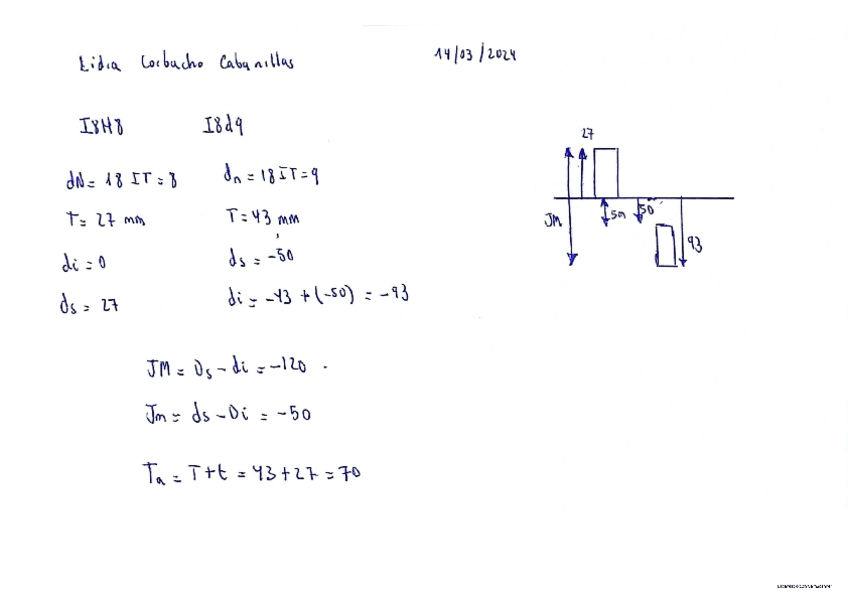 Lidia Corbacho Cabanillas
14/03/2024
I8H8
I8d9
dN = 18 IT = 8
dn = 18 IT = 9
T = 27 mm
T = 43 mm
di = 0
ds = -50
ds = 27
di = -43 + (-50) = -93
27
JM
Jm
50
93
JM = Ds - di = -120
Jm = ds - Di = -50
Ta = T + t = 43 + 27 = 70